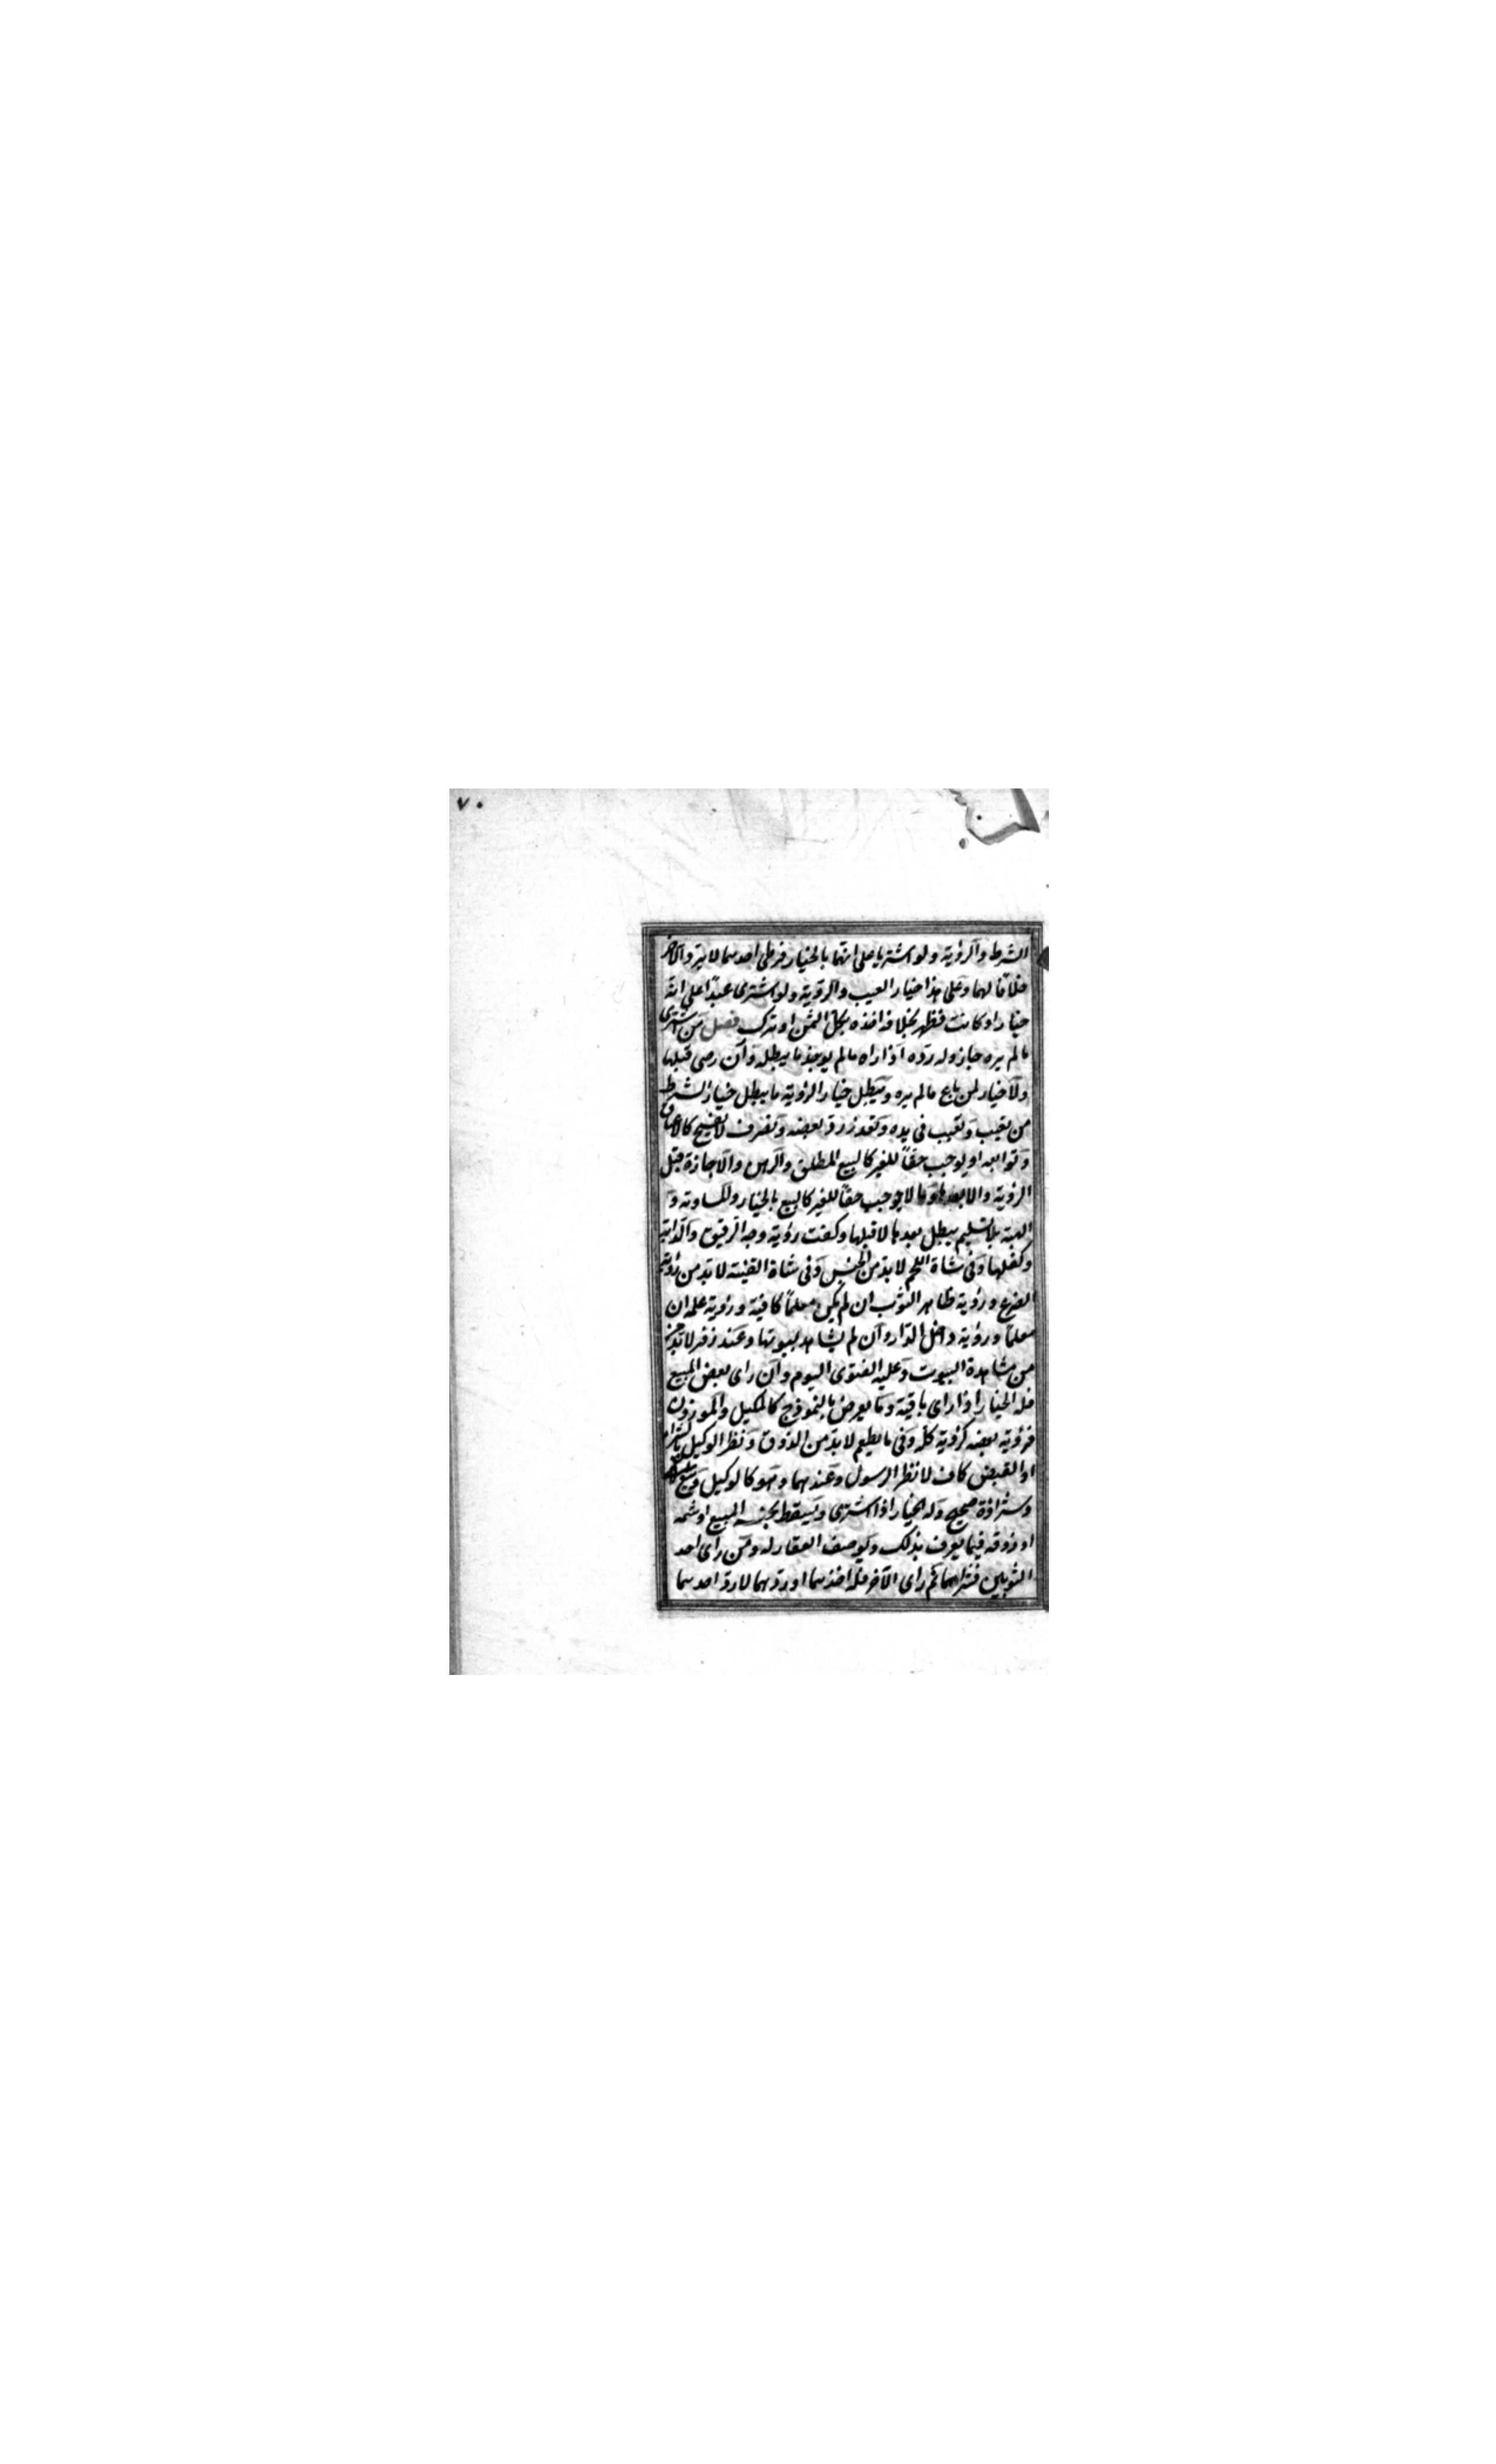 ٧٠
الشرط والرؤية ولو اشتريا على انهما بالخيار فرضى احدهما لا يرد الآخر
خلافا لهما وعلى هذا خيار العيب والرؤية ولو اشترى عبدا على انه
خباز او كاتب فظهر بخلافه اخذه بكل الثمن او ترك فصل من اشترى
ما لم يره جاز وله رده اذا راه ما لم يوجد ما يبطله وان رضى قبلها
ولا خيار لمن باع ما لم يره ويبطل خيار الرؤية ما يبطل خيار الشرط
من تعيب وتعيب فى يده وتعذر رد بعضه وتصرف لا يفسخ كالاعتاق
وتوابعه او يوجب حقا للغير كالبيع المطلق والرهن والاجارة قبل
الرؤية والا بعدها وما لا يوجب حقا للغير كالبيع بالخيار والمساومة و
الهبة بلا تسليم يبطل بعدها لا قبلها وكفت رؤية وجه الرقيق والدابة
وكفلها وفى شاة اللحم لا بد من الجس وفى شاة القنية لا بد من رؤية
الضرع ورؤية ظاهر الثوب ان لم يكن معلما كافية ورؤية علمه ان
معلما ورؤية داخل الدار وان لم يشاهد بيوتها وعند زفر لا بد
من مشاهدة البيوت وعليه الفتوى اليوم وان راى بعض المبيع
فله الخيار اذا راى باقية وما يعرض بالنموذج كالمكيل والموزون
فرؤية بعضه كرؤية كله وفى ما يطعم لا بد من الذوق ونظر الوكيل بالشراء
او القبض كاف لا نظر الرسول وعندهما وهو كالوكيل وبيع
وشراؤه صحيح وله الخيار اذا اشترى ويسقط بجسه المبيع او شمه
او ذوقه فيما يعرف بذلك وبوصف العقار له ومن راى احد
الثوبين فشراهما ثم راى الآخر فله اخذهما او ردهما لا رد احدهما